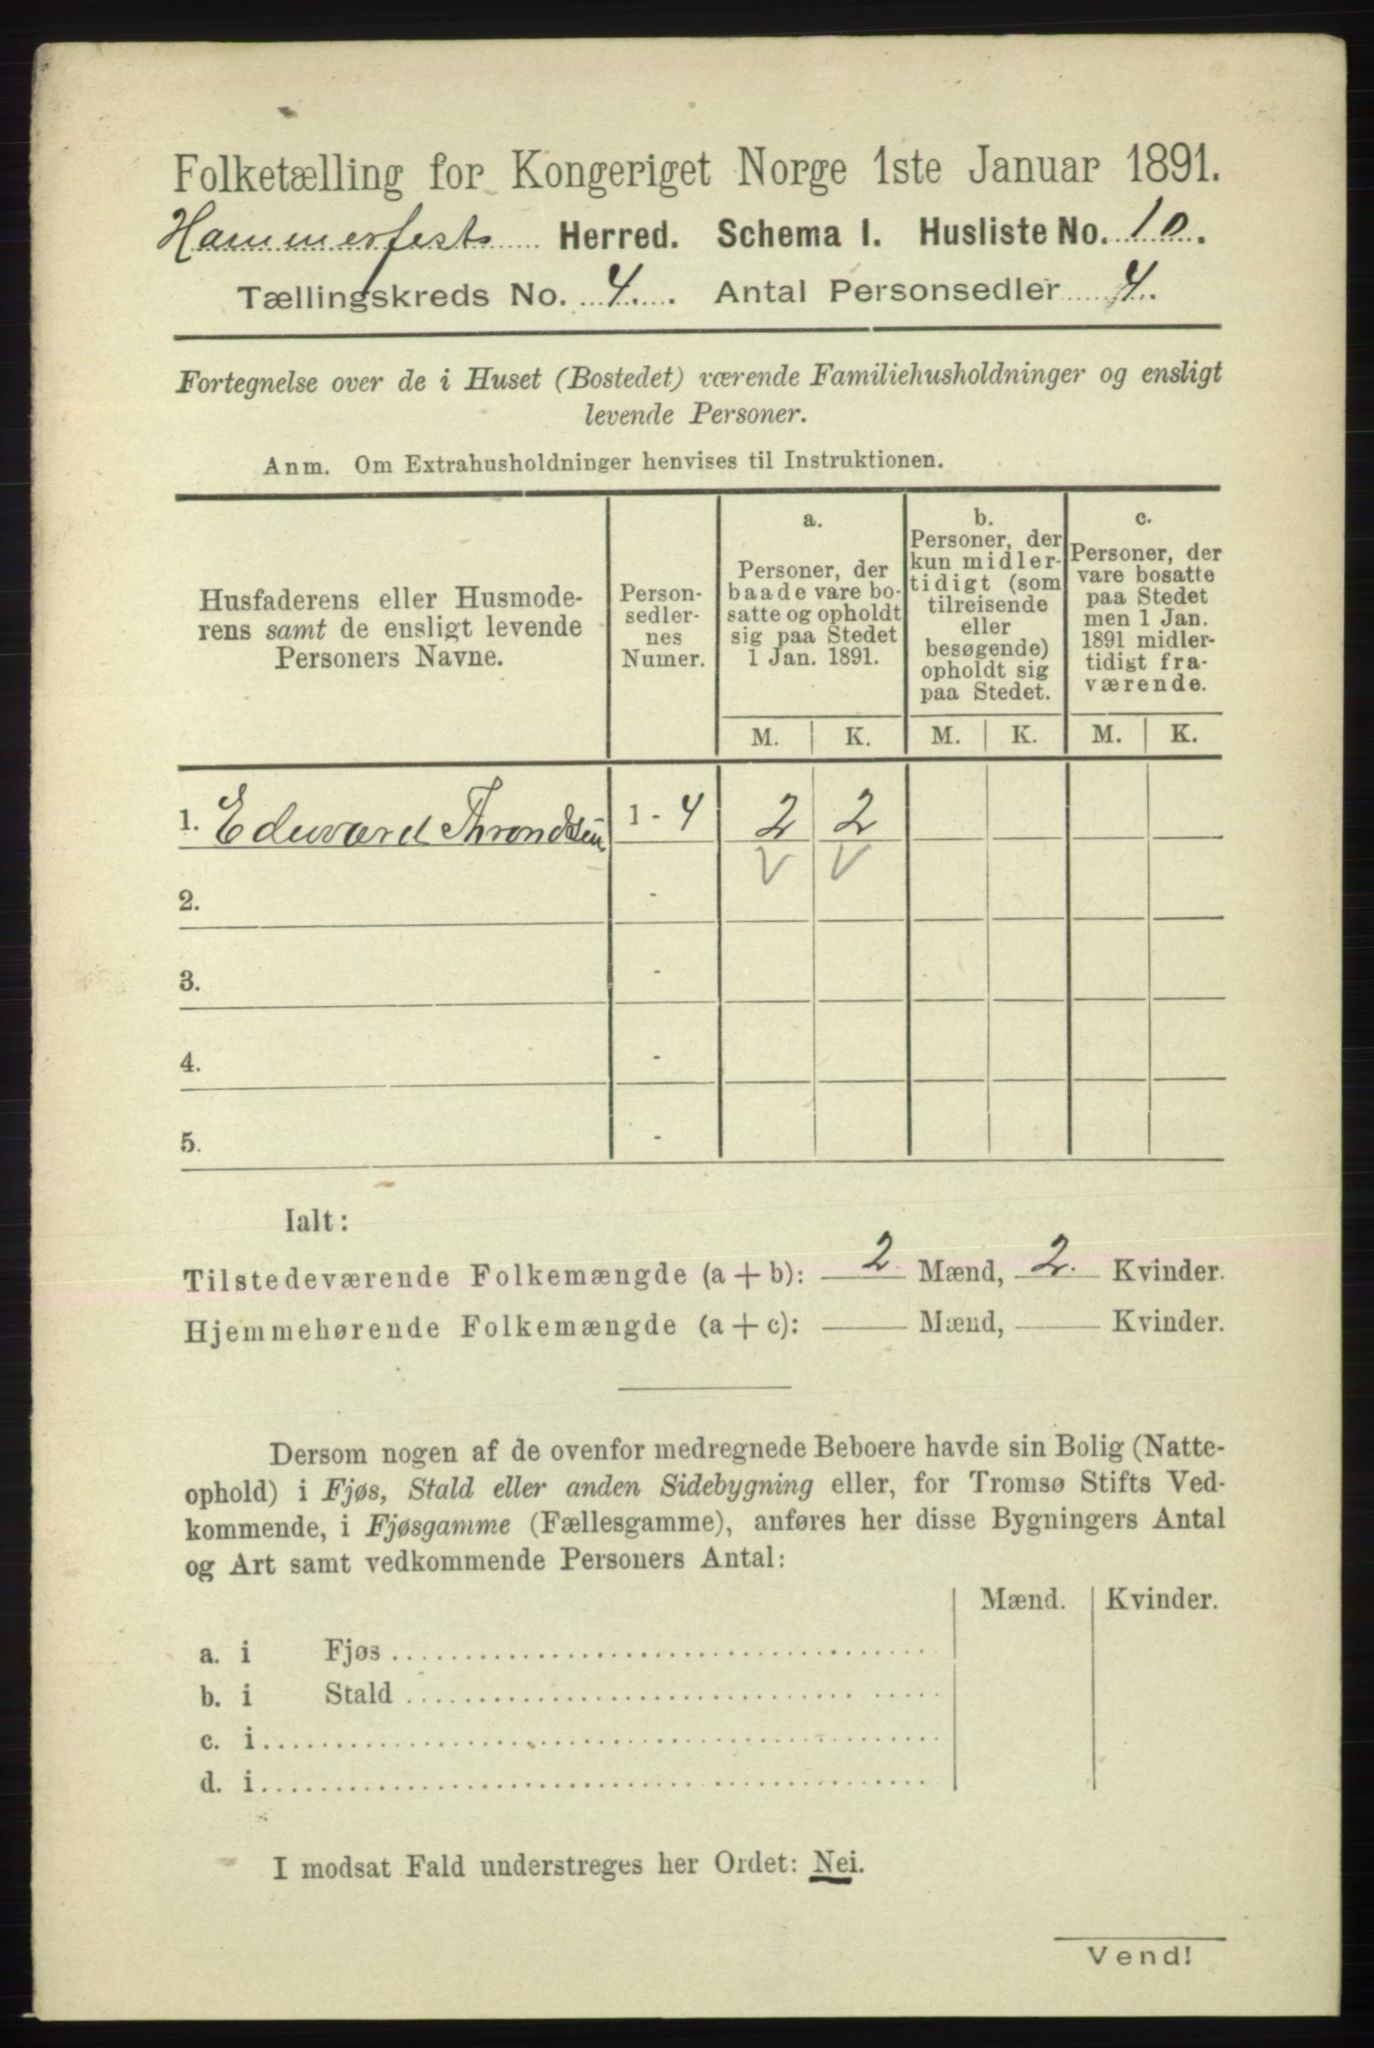 Folketælling for Kongeriget Norge 1ste Januar 1891.
Hammerfests Herred. Schema I. Husliste No. 10.
Tællingskreds No. 4. Antal Personsedler 4.
Fortegnelse over de i Huset (Bostedet) værende Familiehusholdninger og ensligt
levende Personer.
Anm. Om Extrahusholdninger henvises til Instruktionen.
Husfaderens eller Husmode-
rens samt de ensligt levende
Personers Navne.
Person-
sedler-
nes
Numer.
a.
Personer, der
baade vare bo-
satte og opholdt
sig paa Stedet
1 Jan. 1891.
b.
Personer, der
kun midler-
tidigt (som
tilreisende
eller
besøgende)
opholdt sig
paa Stedet.
c.
Personer, der
vare bosatte
paa Stedet
men 1 Jan.
1891 midler-
tidigt fra-
værende.
M. K. M. K. M. K.
1. Edward Throndsen 1 - 4 2 2
V V
2. -
3. -
4. -
5. -
Ialt:
Tilstedeværende Folkemængde (a + b): 2 Mænd, 2. Kvinder.
Hjemmehørende Folkemængde (a + c): Mænd, Kvinder.
Dersom nogen af de ovenfor medregnede Beboere havde sin Bolig (Natte-
ophold) i Fjøs, Stald eller anden Sidebygning eller, for Tromsø Stifts Ved-
kommende, i Fjøsgamme (Fællesgamme), anføres her disse Bygningers Antal
og Art samt vedkommende Personers Antal:
Mænd. Kvinder.
a. i Fjøs
b. i Stald
c. i
d. i
I modsat Fald understreges her Ordet: Nei.
Vend!